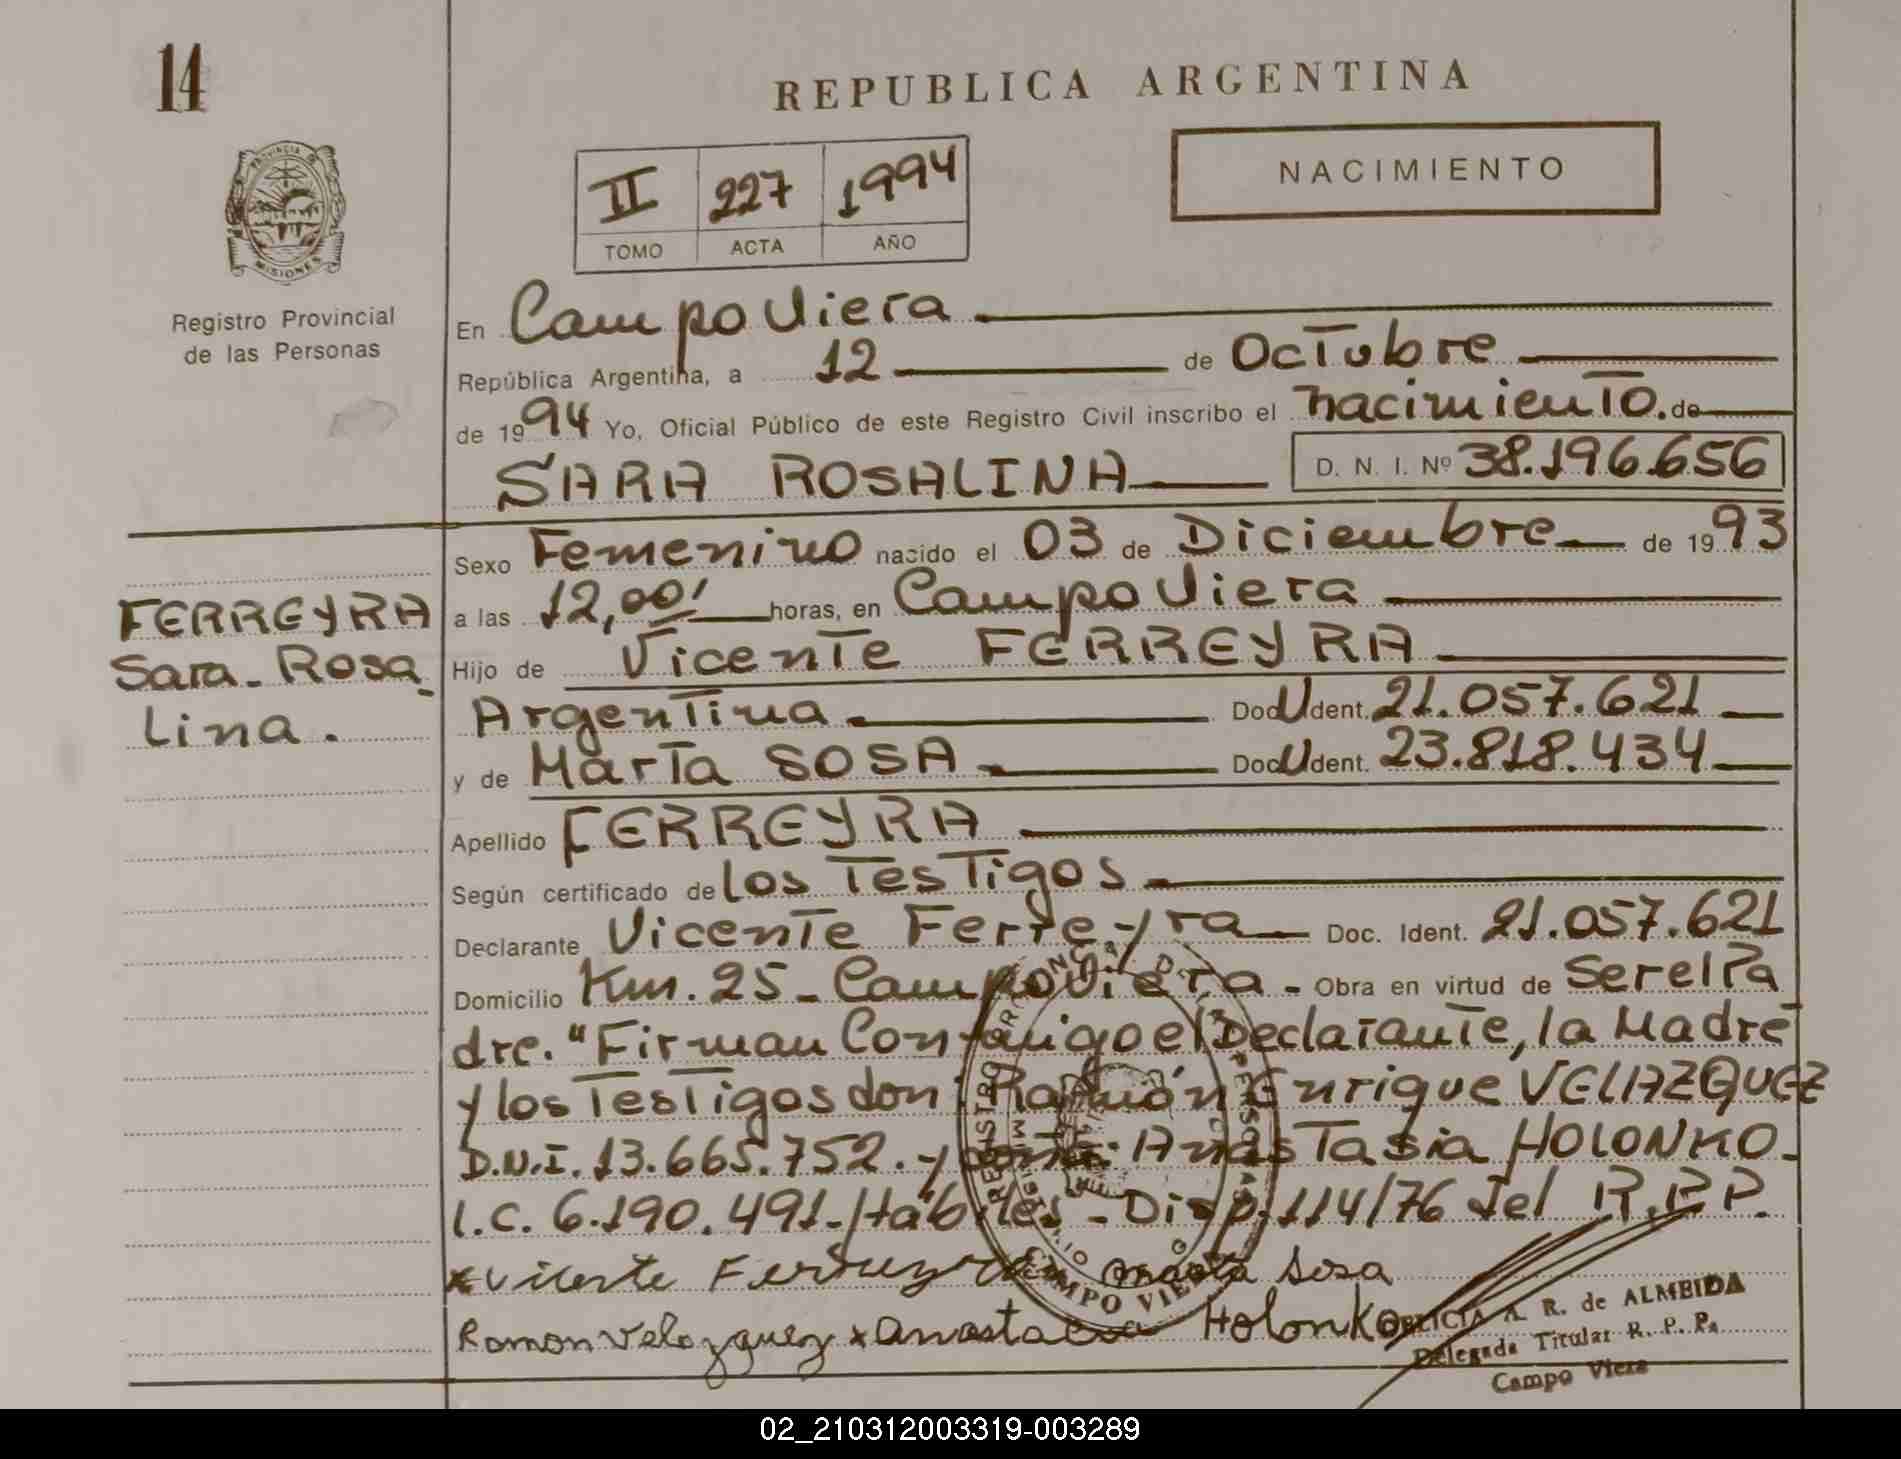 14
REPUBLICA ARGENTINA
PROVINCIA D
MISIONES
Registro Provincial
de las Personas
II 227 1994
TOMO ACTA AÑO
NACIMIENTO
En Campo Viera
República Argentina, a 12 de Octubre
de 1994 Yo, Oficial Público de este Registro Civil inscribo el nacimiento. de
SARA ROSALINA D. N. I. Nº 38.196.656
FERREYRA
Sara - Rosa
Lina.
Sexo Femenino nacido el 03 de Diciembre de 1993
a las 12,00' horas, en Campo Viera
Hijo de Vicente FERREYRA
Argentina Doc U dent. 21.057.621
y de Marta SOSA Doc U dent. 23.818.434
Apellido FERREYRA
Según certificado de los Testigos
Declarante Vicente Ferreyra Doc. Ident. 21.057.621
Domicilio Km. 25 - Campo Viera - Obra en virtud de Ser el Pa
dre. "Firman Conmigo el Declarante, la Madre
y los Testigos don: Ramón Enrique VELAZQUEZ
D.N.I. 13.665.752. y doña: Anastasia HOLONKO -
L.C. 6.190.491 - Hábiles - Disp. 114/76 del R.P.P.
x Vicente Ferreyra Marta Sosa
Ramon Velazquez x Anastacia Holonko
REGISTRO PROVINCIAL DE LAS PERSONAS
CAMPO VIERA
A. R. de ALMEIDA
Delegada Titular R. P. P.
Campo Viera
02_210312003319-003289